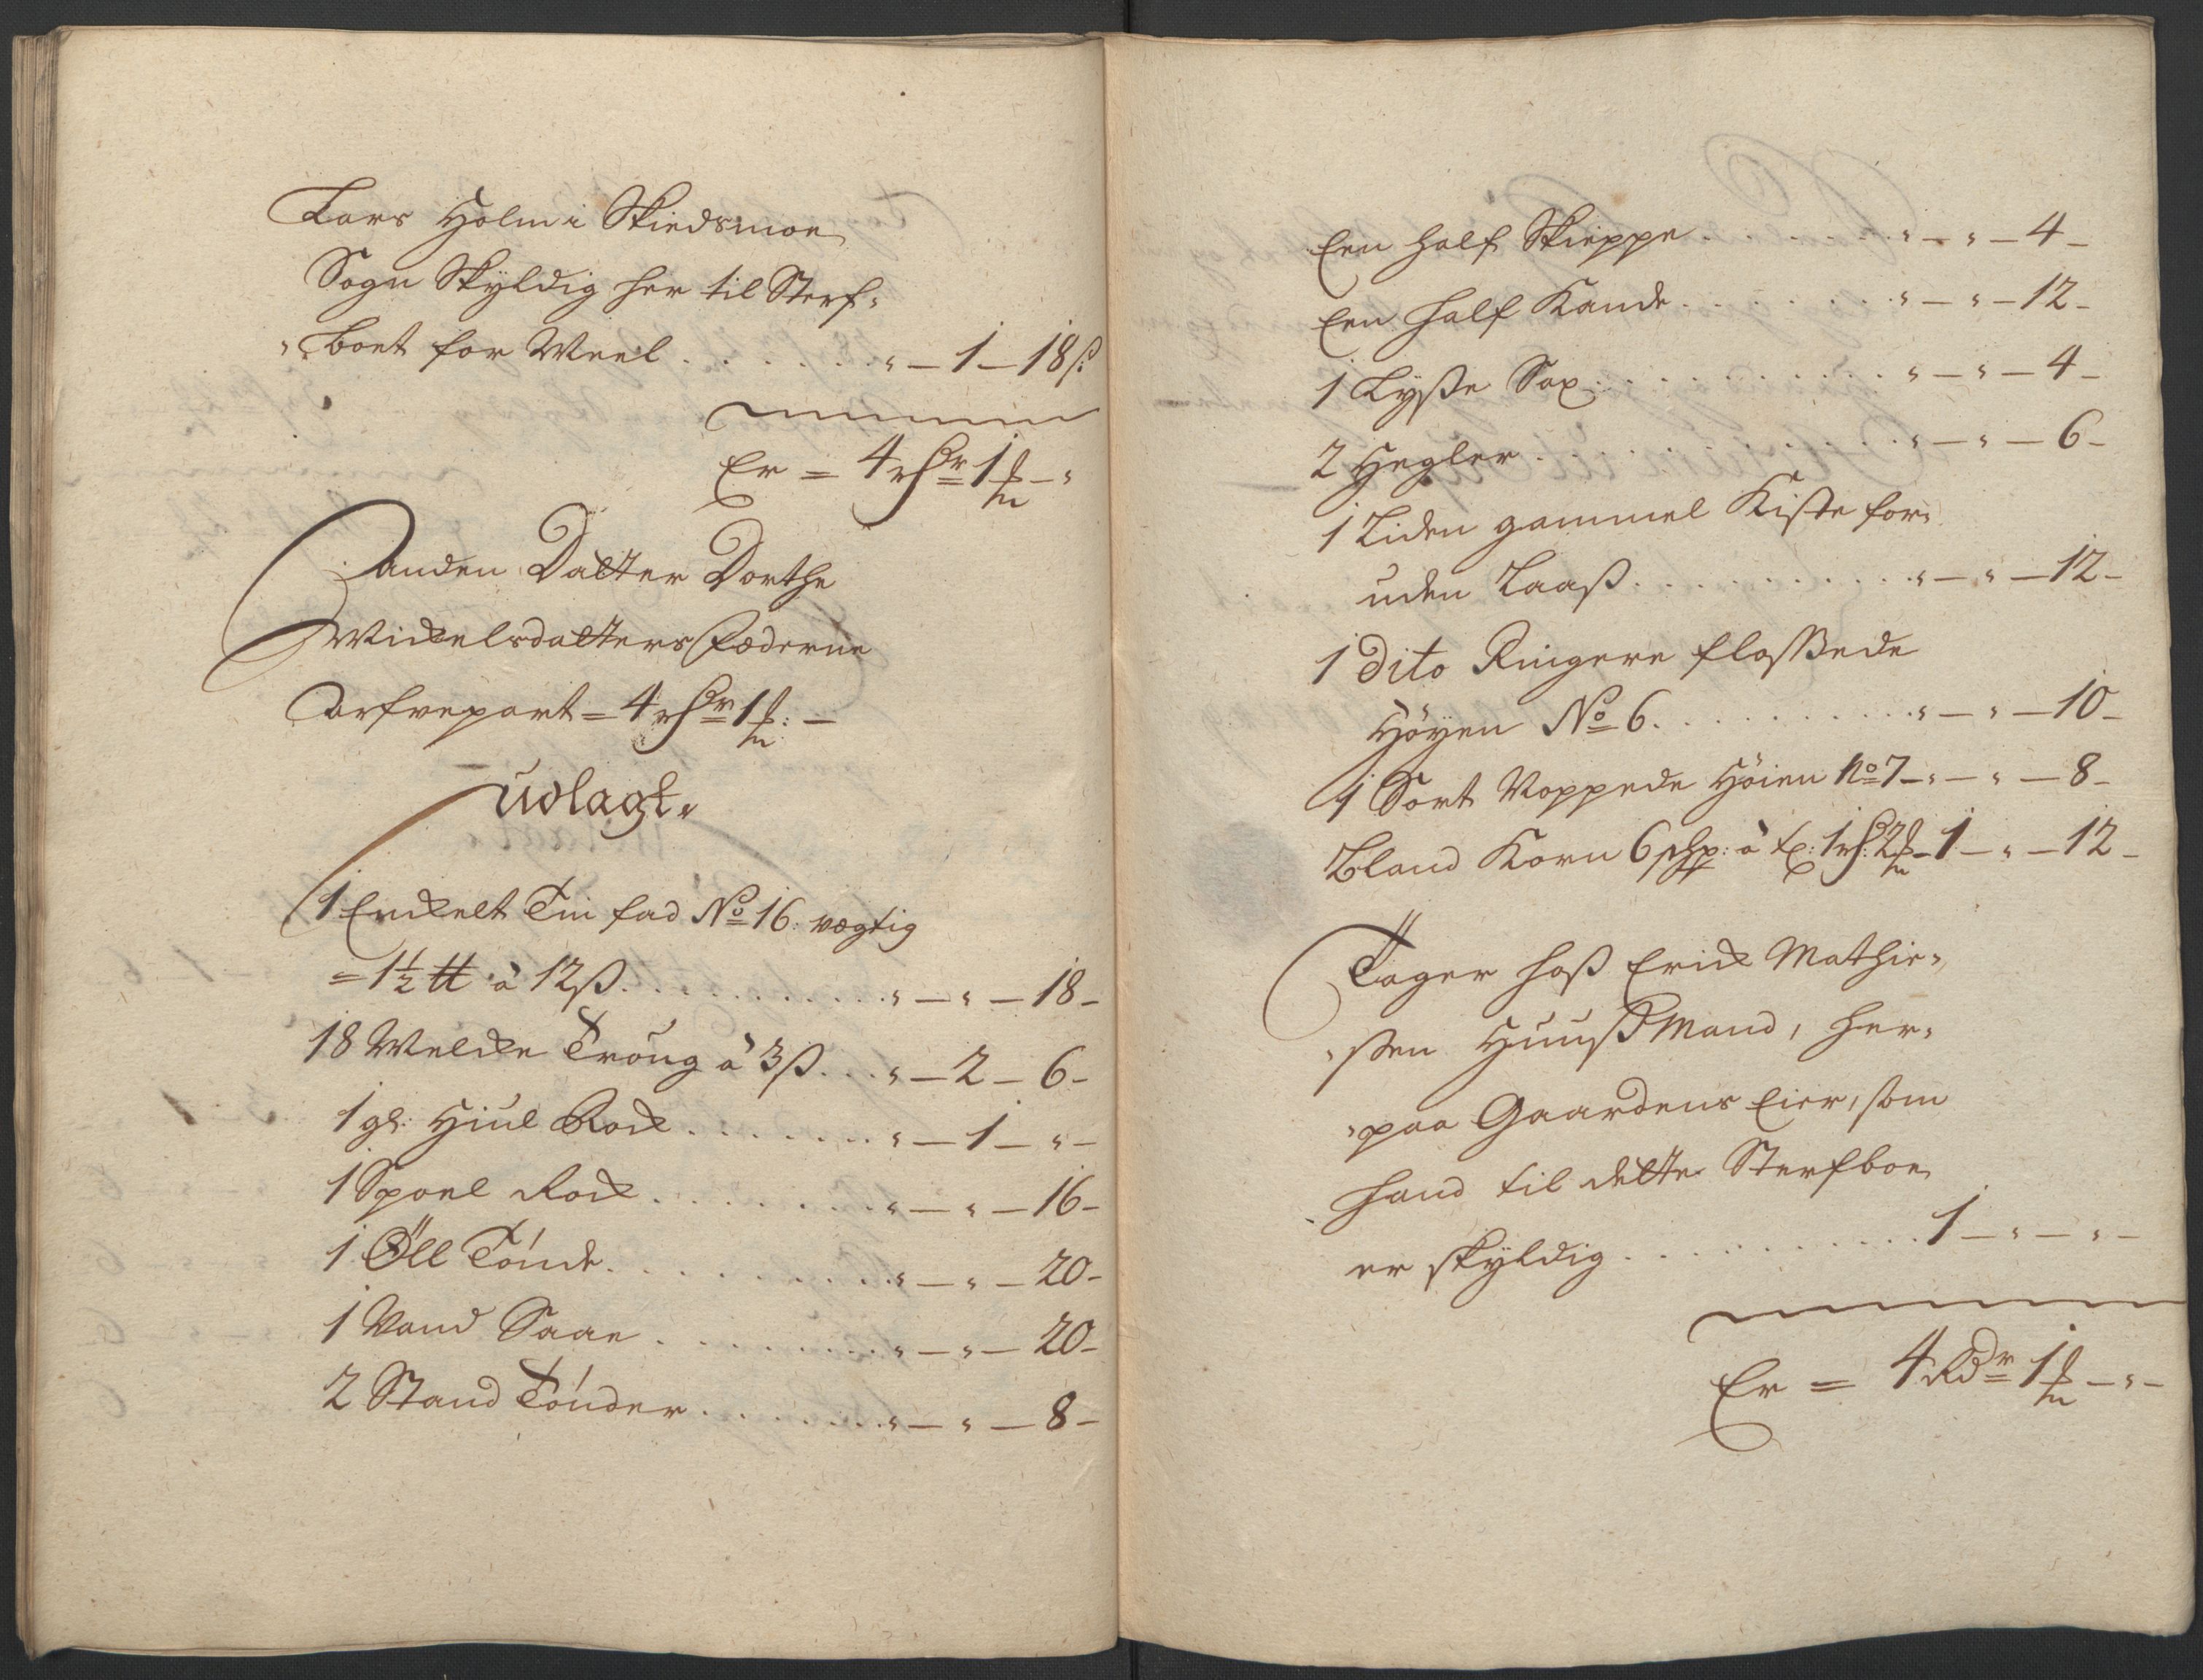 Lars Holm i Skiedsmoe
Sogn Skÿldig her til Sterf-
-boet for Meel . . . . . . . " — 1 — 18 ß
Er = 4 rdr 1 ort — "
Anden Datter Dorthe
Mickelsdatters Fæderne
Arfvepart = 4 rdr 1 ort: —
Udlagt.
1 Enckelt Tin fad No 16: vægtig
= 1½ ℔ à 12 ß. . . . . . . . . . " — " — 18 —
18 Melcke Troug à 3 ß. . . " — 2 — 6 —
1 gl: Hiul Rock . . . . . . . . " — 1 — " —
1 Spoel Rock . . . . . . . . " — " — 16 —
1 Öll Tönde . . . . . . . . . . " — " — 20 —
1 Vand Saae . . . . . . . . . " — " — 20 —
2 Stand Tönder . . . . . . . " — " — 8 —
Een half Skieppe . . . . . . . " — " — 4 —
Een half Kande . . . . . . . . " — " — 12 —
1 Lyße Sax . . . . . . . . . . . " — " — 4 —
2 Hegler . . . . . . . . . . . . . " — " — 6 —
1 Liden gammel Kiste for-
uden Laaß . . . . . . . . . . . " — " — 12 —
1 Dito Ringere floßede
Höyen No 6. . . . . . . . . . . " — " — 10 —
1 Sort Noppede Höien No 7 — " — " — 8 —
Bland Korn 6 schp: à t: 1 rd 2 ort — 1 — " — 12 —
Tager hoß Erick Mathie-
-ßen Huußmand, her-
-paa Gaardens Eier, som
hand til dette Sterfboe
er skÿldig . . . . . . . . . . . 1 — " — " —
Er = 4 Rdr 1 ort — " —